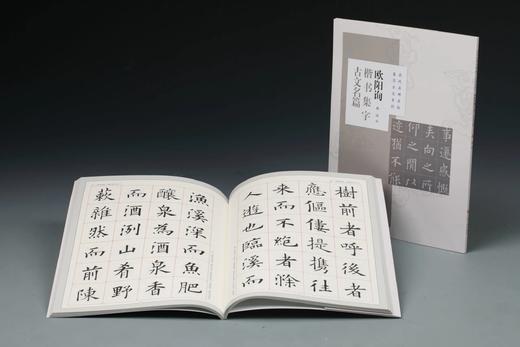 樹前者呼後者
應傴僂提攜往
來而不絶者滁
人遊也臨溪而
漁溪深而魚肥
釀泉為酒泉香
而酒洌山肴野
蔌雜然而前陳
欧阳询
楷书集字
古文名篇
事遷感慨
矣向之所
仰之閒以
迹猶不能